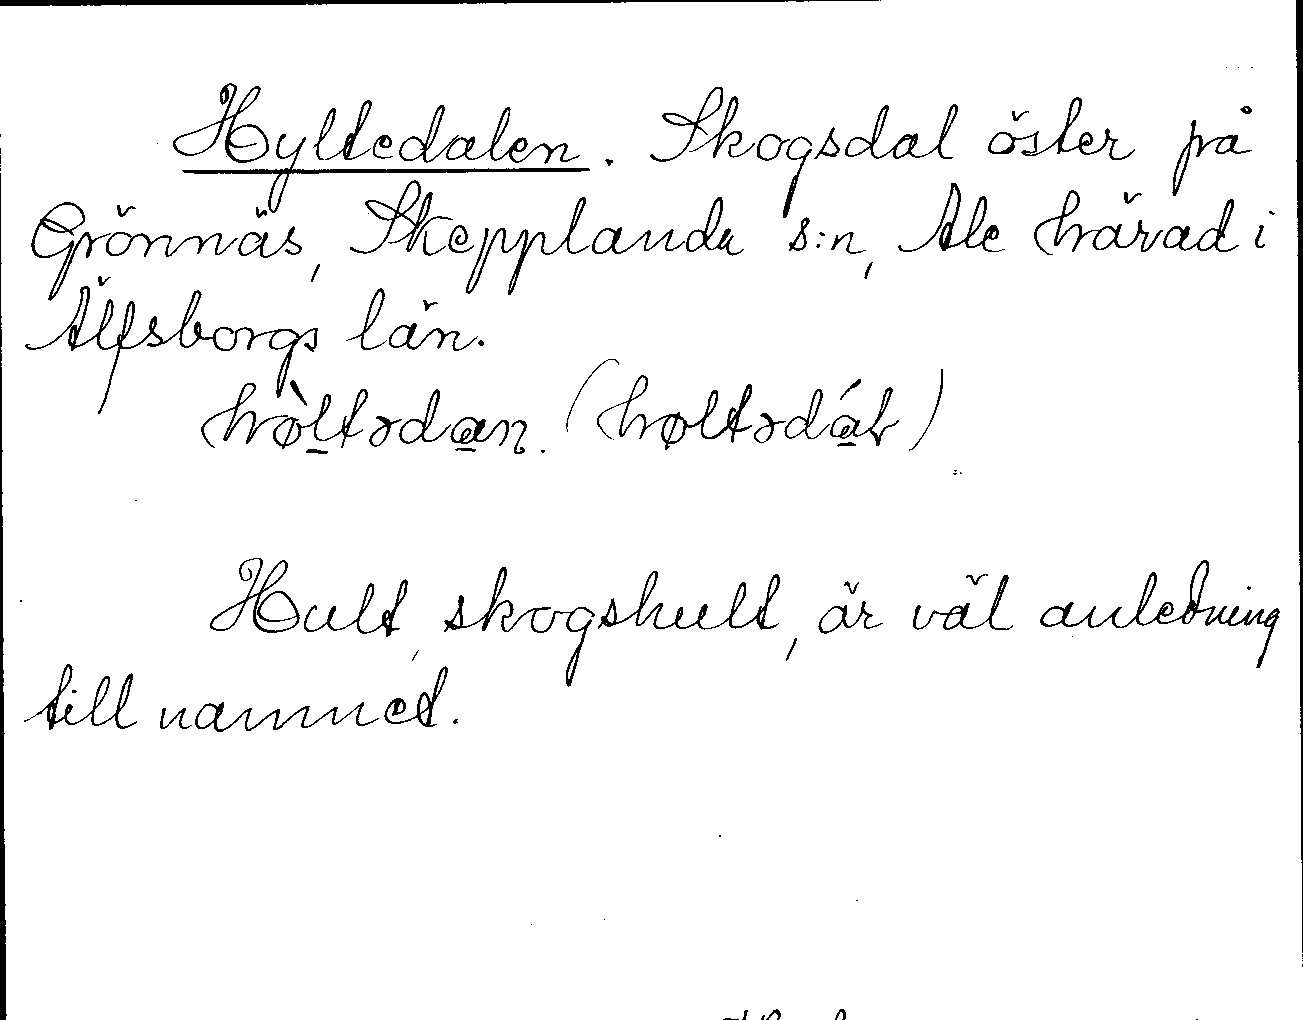 Hyltedalen. Skogsdal öster på
Grönnäs, Skepplanda s:n, Ale härad i
Älfsborgs län.
hø̀ltədan. (høltədáɫ)
Hult, skogshult, är väl anledning
till namnet.